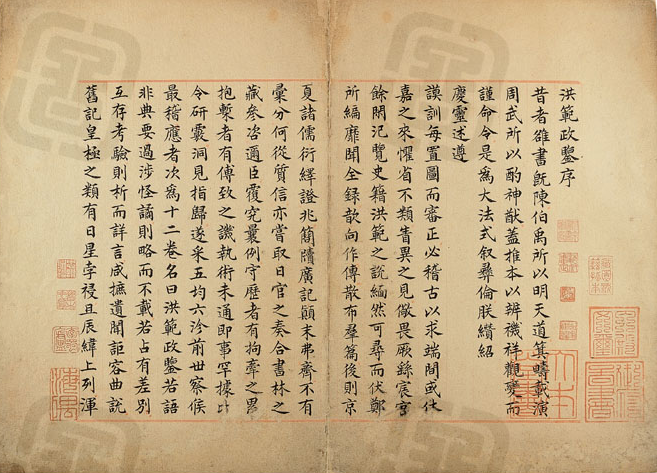 洪範政鑒序
昔者雒書旣陳伯禹所以明天道箕疇載演
周武所以酌神猷蓋推本以辨禨祥觀變而
謹命令是爲大法式叙彛倫朕纘紹
慶靈述遵
謨訓每置圖而審正必稽古以求端閒或休
嘉之來懼省不類眚異之見儆畏厥繇宸宫
餘閒汜覽史籍洪範之說緬然可尋而伏鄭
所編靡聞全録歆向作傳散布羣篇後則京
夏諸儒衍繹證兆簡牘廣記顛末弗齊不有
彙分何從質信亦嘗取日官之奏合書林之
藏參咨邇臣覆究曩例守歷者有拘牽之累
抱槧者有傅致之譏執術未通即事罕據比
令研覈洞見指歸遂采五均六沴前世察候
最稽應者次爲十二卷名曰洪範政鑒若語
非典要過涉怪譎則略而不載若占有差别
互存考驗則析而詳言咸摭遺聞詎容曲說
舊記皇極之類有日星孛祲且辰緯上列渾